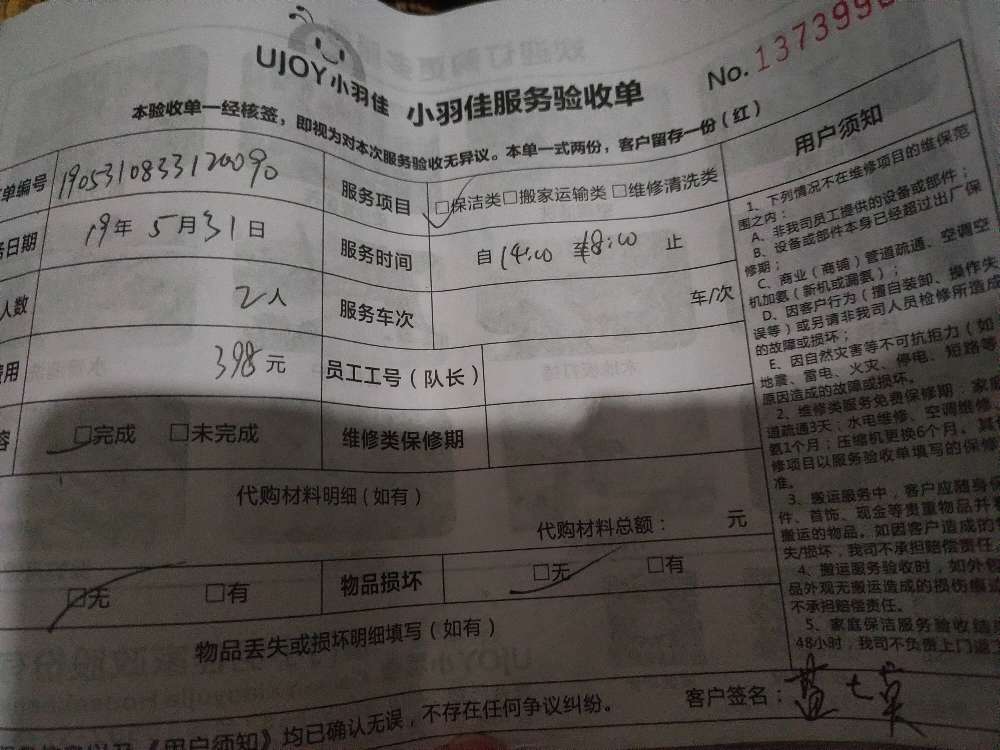 UJOY小羽佳
小羽佳服务验收单
No. 137399
本验收单一经核签，即视为对本次服务验收无异议。本单一式两份，客户留存一份（红）
单编号
1905310833120090
服务项目
□保洁类□搬家运输类□维修清洗类
日期
19年5月31日
服务时间
自14:00至18:00止
人数
2人
服务车次
车/次
用
398元
员工工号（队长）
容
□完成 □未完成
维修类保修期
代购材料明细（如有）
代购材料总额： 元
□无 □有
物品损坏
□无 □有
物品丢失或损坏明细填写（如有）
《用户须知》均已确认无误，不存在任何争议纠纷。
客户签名：
用户须知
1、下列情况不在维修项目的维保范
围之内：
A、非我司员工提供的设备或部件；
B、设备或部件本身已经超过出厂保
修期；
C、商业（商铺）管道疏通、空调空
机加氨（新机或漏氨）；
D、因客户行为（擅自装卸、操作失
误等）或另请非我司人员检修所造成
的故障或损坏；
E、因自然灾害等不可抗拒力（如
地震、雷电、火灾、停电、短路等
原因造成的故障或损坏。
2、维修类服务免费保修期：家庭
道疏通3天；水电维修、空调维修、
氨1个月；压缩机更换6个月。其
修项目以服务验收单填写的保修
准。
3、搬运服务中，客户应随身保
件、首饰、现金等贵重物品并
搬运的物品。如因客户造成的
失/损坏，我司不承担赔偿责任。
4、搬运服务验收时，如外包
品外观无搬运造成的损伤痕迹
不承担赔偿责任。
5、家庭保洁服务验收结
48小时，我司不负责上门返工